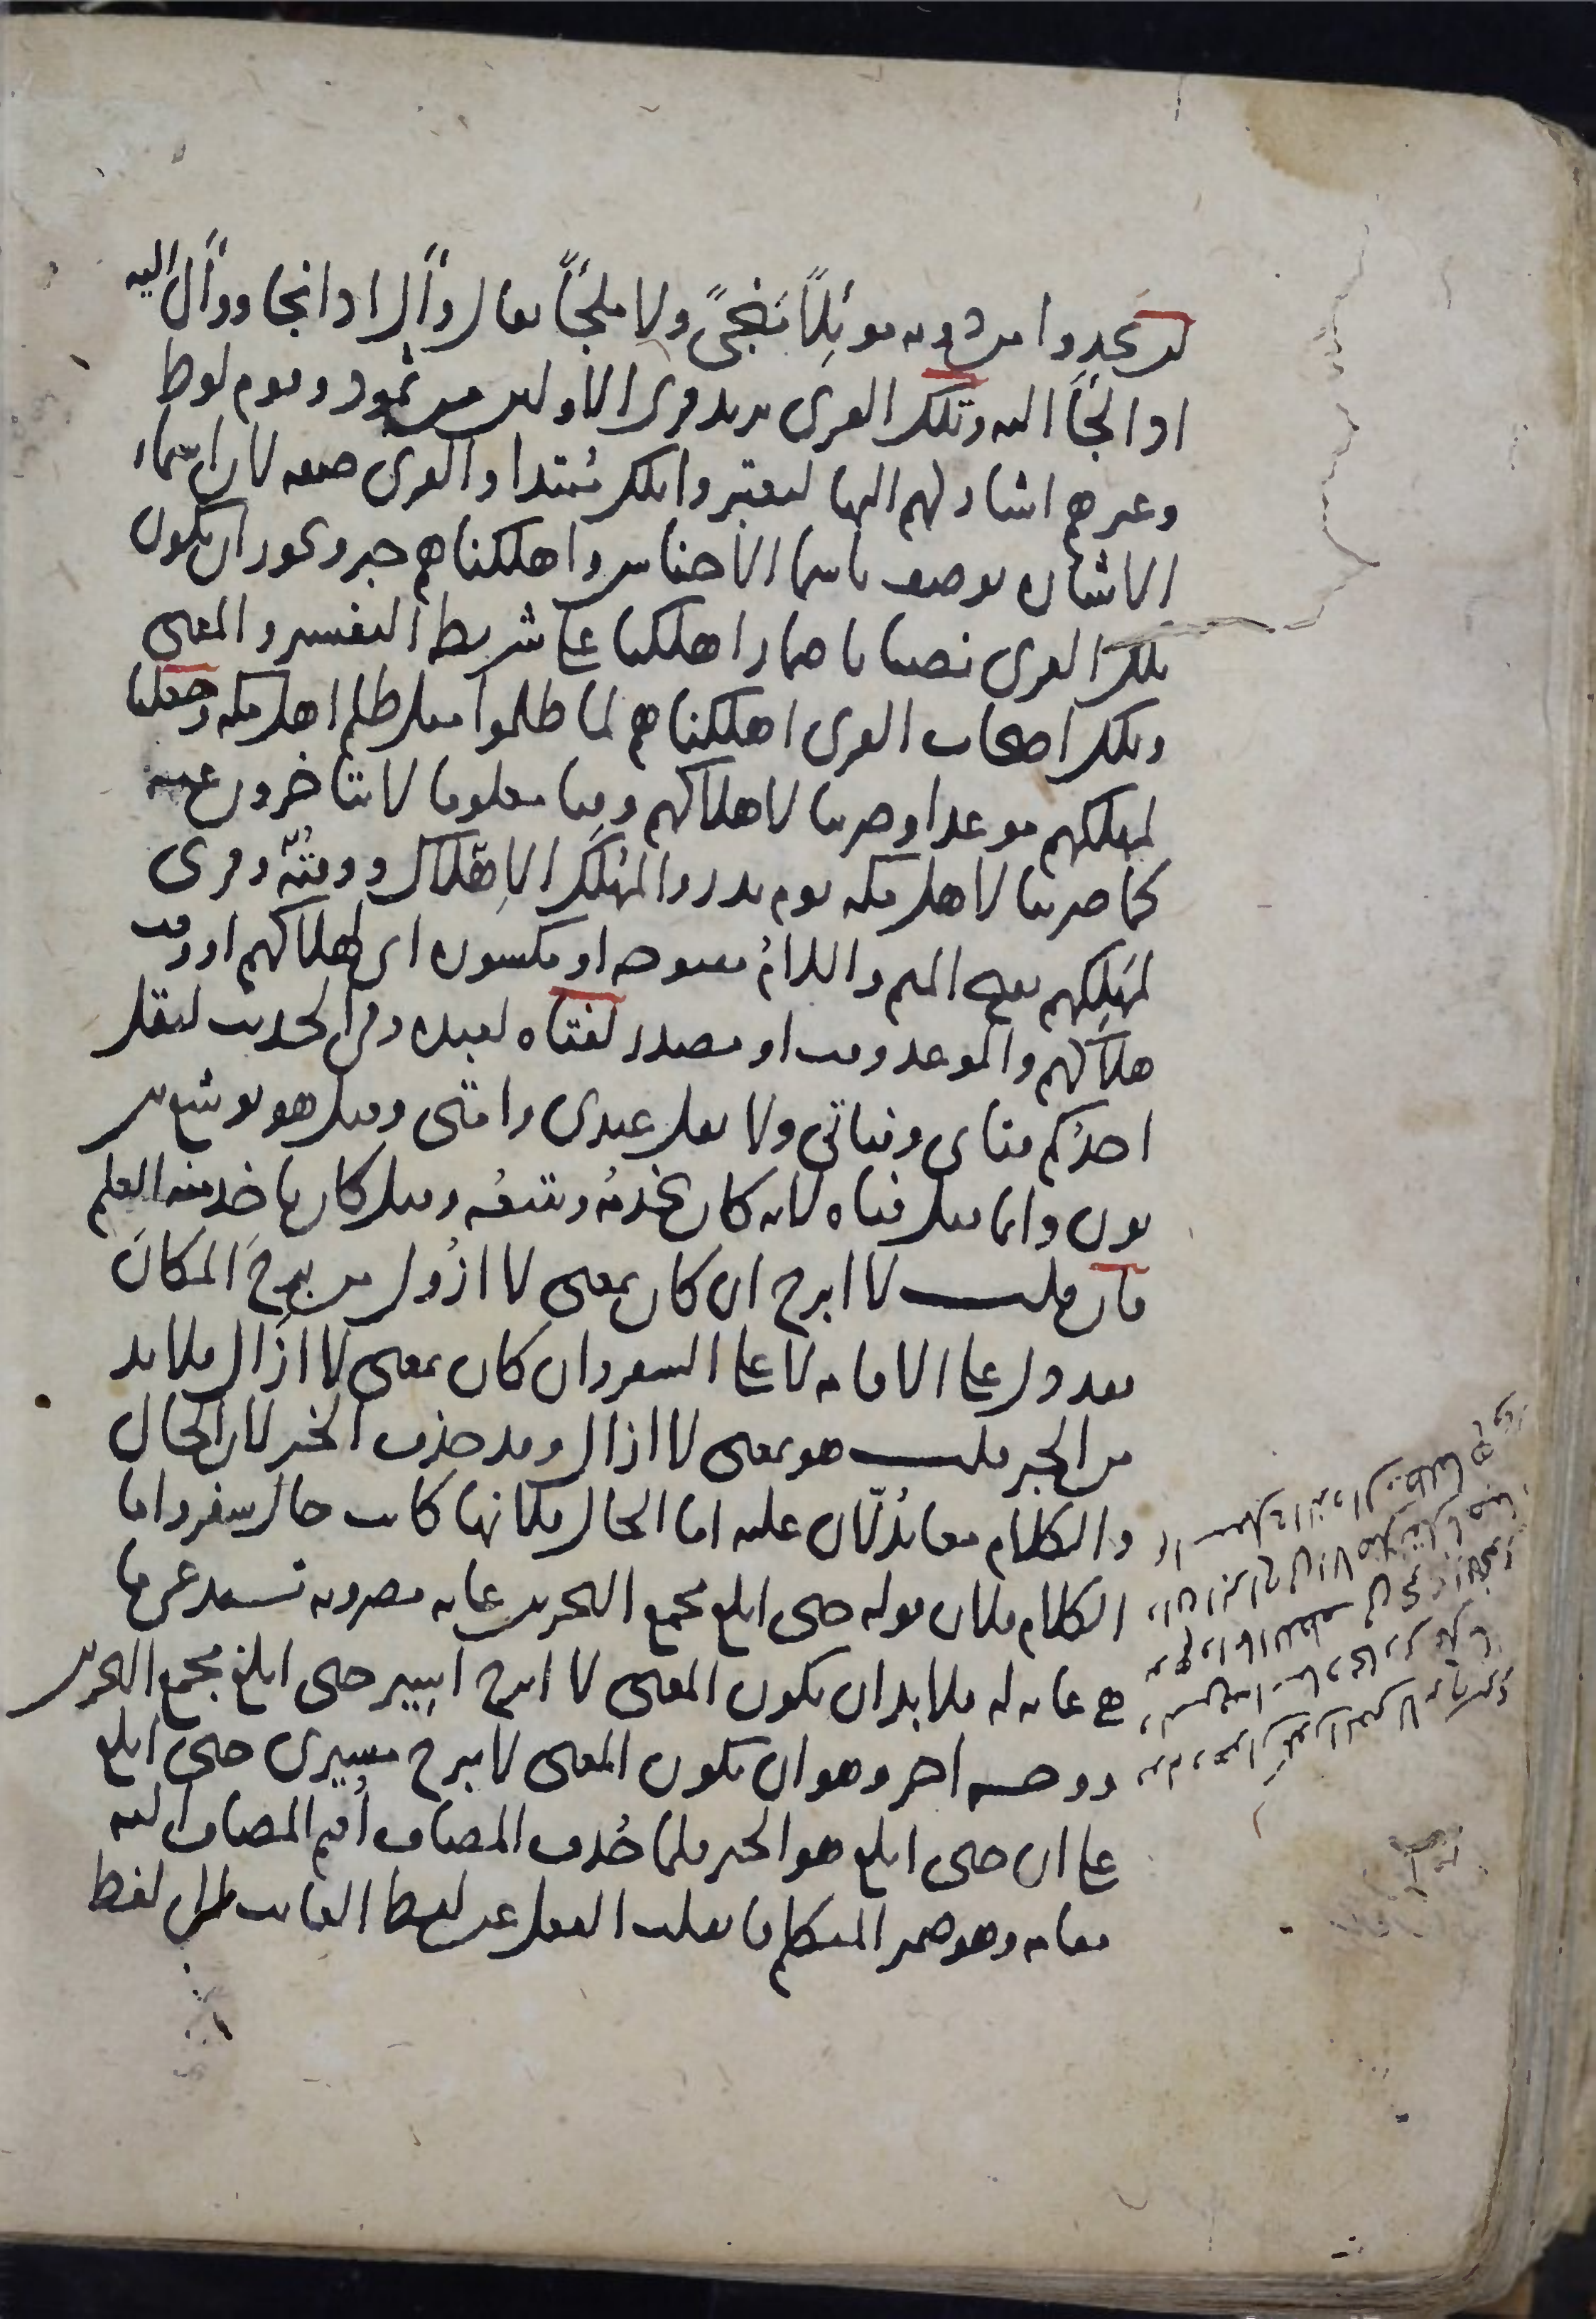 لن يجدوا من دونه موئلًا منجىً ولا ملجأً يقال وأل اذا نجا ووأل اليه
اذا لجأ اليه وتلك القرى يريد قرى الاولين من ثمود وقوم لوط
وغيرهم اشار لهم اليها ليعتبروا تلك مُبتدا والقرى صفه لان اسماء
الاشاره توصف باسما الاجناس واهلكناهم خبر ويجوز ان يكون
تلك القرى نصبا باضمار اهلكنا على شريطه التفسير والمعنى
وتلك اصحاب القرى اهلكناهم لما ظلموا مثل ظلم اهل مكه وجعلنا
لمهلكهم موعدا وضربنا لاهلاكهم وقتا معلوما لا يتاخرون عنه
كما ضربنا لاهل مكه يوم بدر والمُهلَك الاِهلاك ووقتُه وقرى
لمَهلِكهم بفتح الميم واللامُ مفتوحه او مكسوره اى لهلاكهم او وقت
هلاكهم والموعد وقت او مصدر لفتاه لعبده وفى الحديث ليقل
احدُكم فتاى وفتاتى ولا يقل عبدى وامتى وقيل هو يوشع بن
نون وانما قيل فتاه لانه كان يخدمُه ويتبعُه وقيل كان ياخذ منه العلم
فان قلت لا ابرح ان كان بمعنى لا ازُول من برِحَ المكانَ
فقد دل على الاقامه لا على السفر وان كان بمعنى لا ازَال فلا بد
من الخبر قلت هو بمعنى لا ازال وقد حذف الخبر لان الحال
والكلام معا يدُلّان عليه اما الحال فلانها كانت حال سفر واما
الكلام فلان قوله حتى ابلغ مجمع البحرين غايه مضروبه تستدعى ما
هى غايه له فلا بد ان يكون المعنى لا ابرح اسير حتى ابلغ مجمع البحرين
ووجه اخر وهو ان يكون المعنى لا يبرح مسيرى حتى ابلغ
على ان حتى ابلغ هو الخبر فلما حُذف المضاف اُقيم المضاف اليه
مقامه وهو ضمير المتكلم فانقلب الفعل عن لفظ الغايب الى لفظ